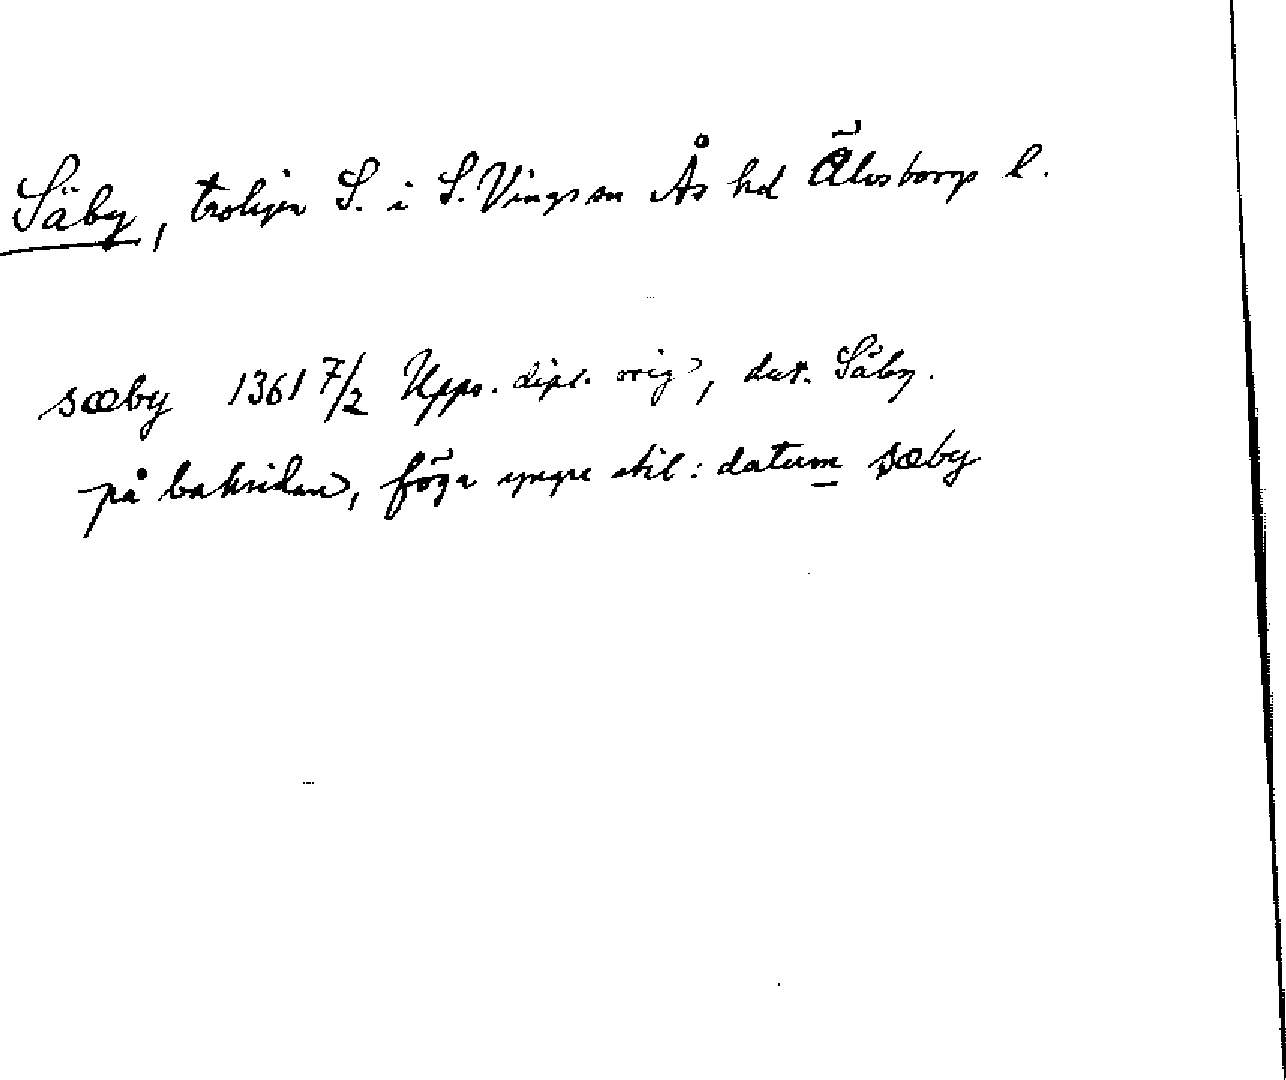 Säby, troligen S. i S. Vings sn Ås hd Älvsborgs l.
sæby 1361 7/2 Upps. dipl. orig, dat. Säby.
på baksidan, föga yngre stil: datum sæby